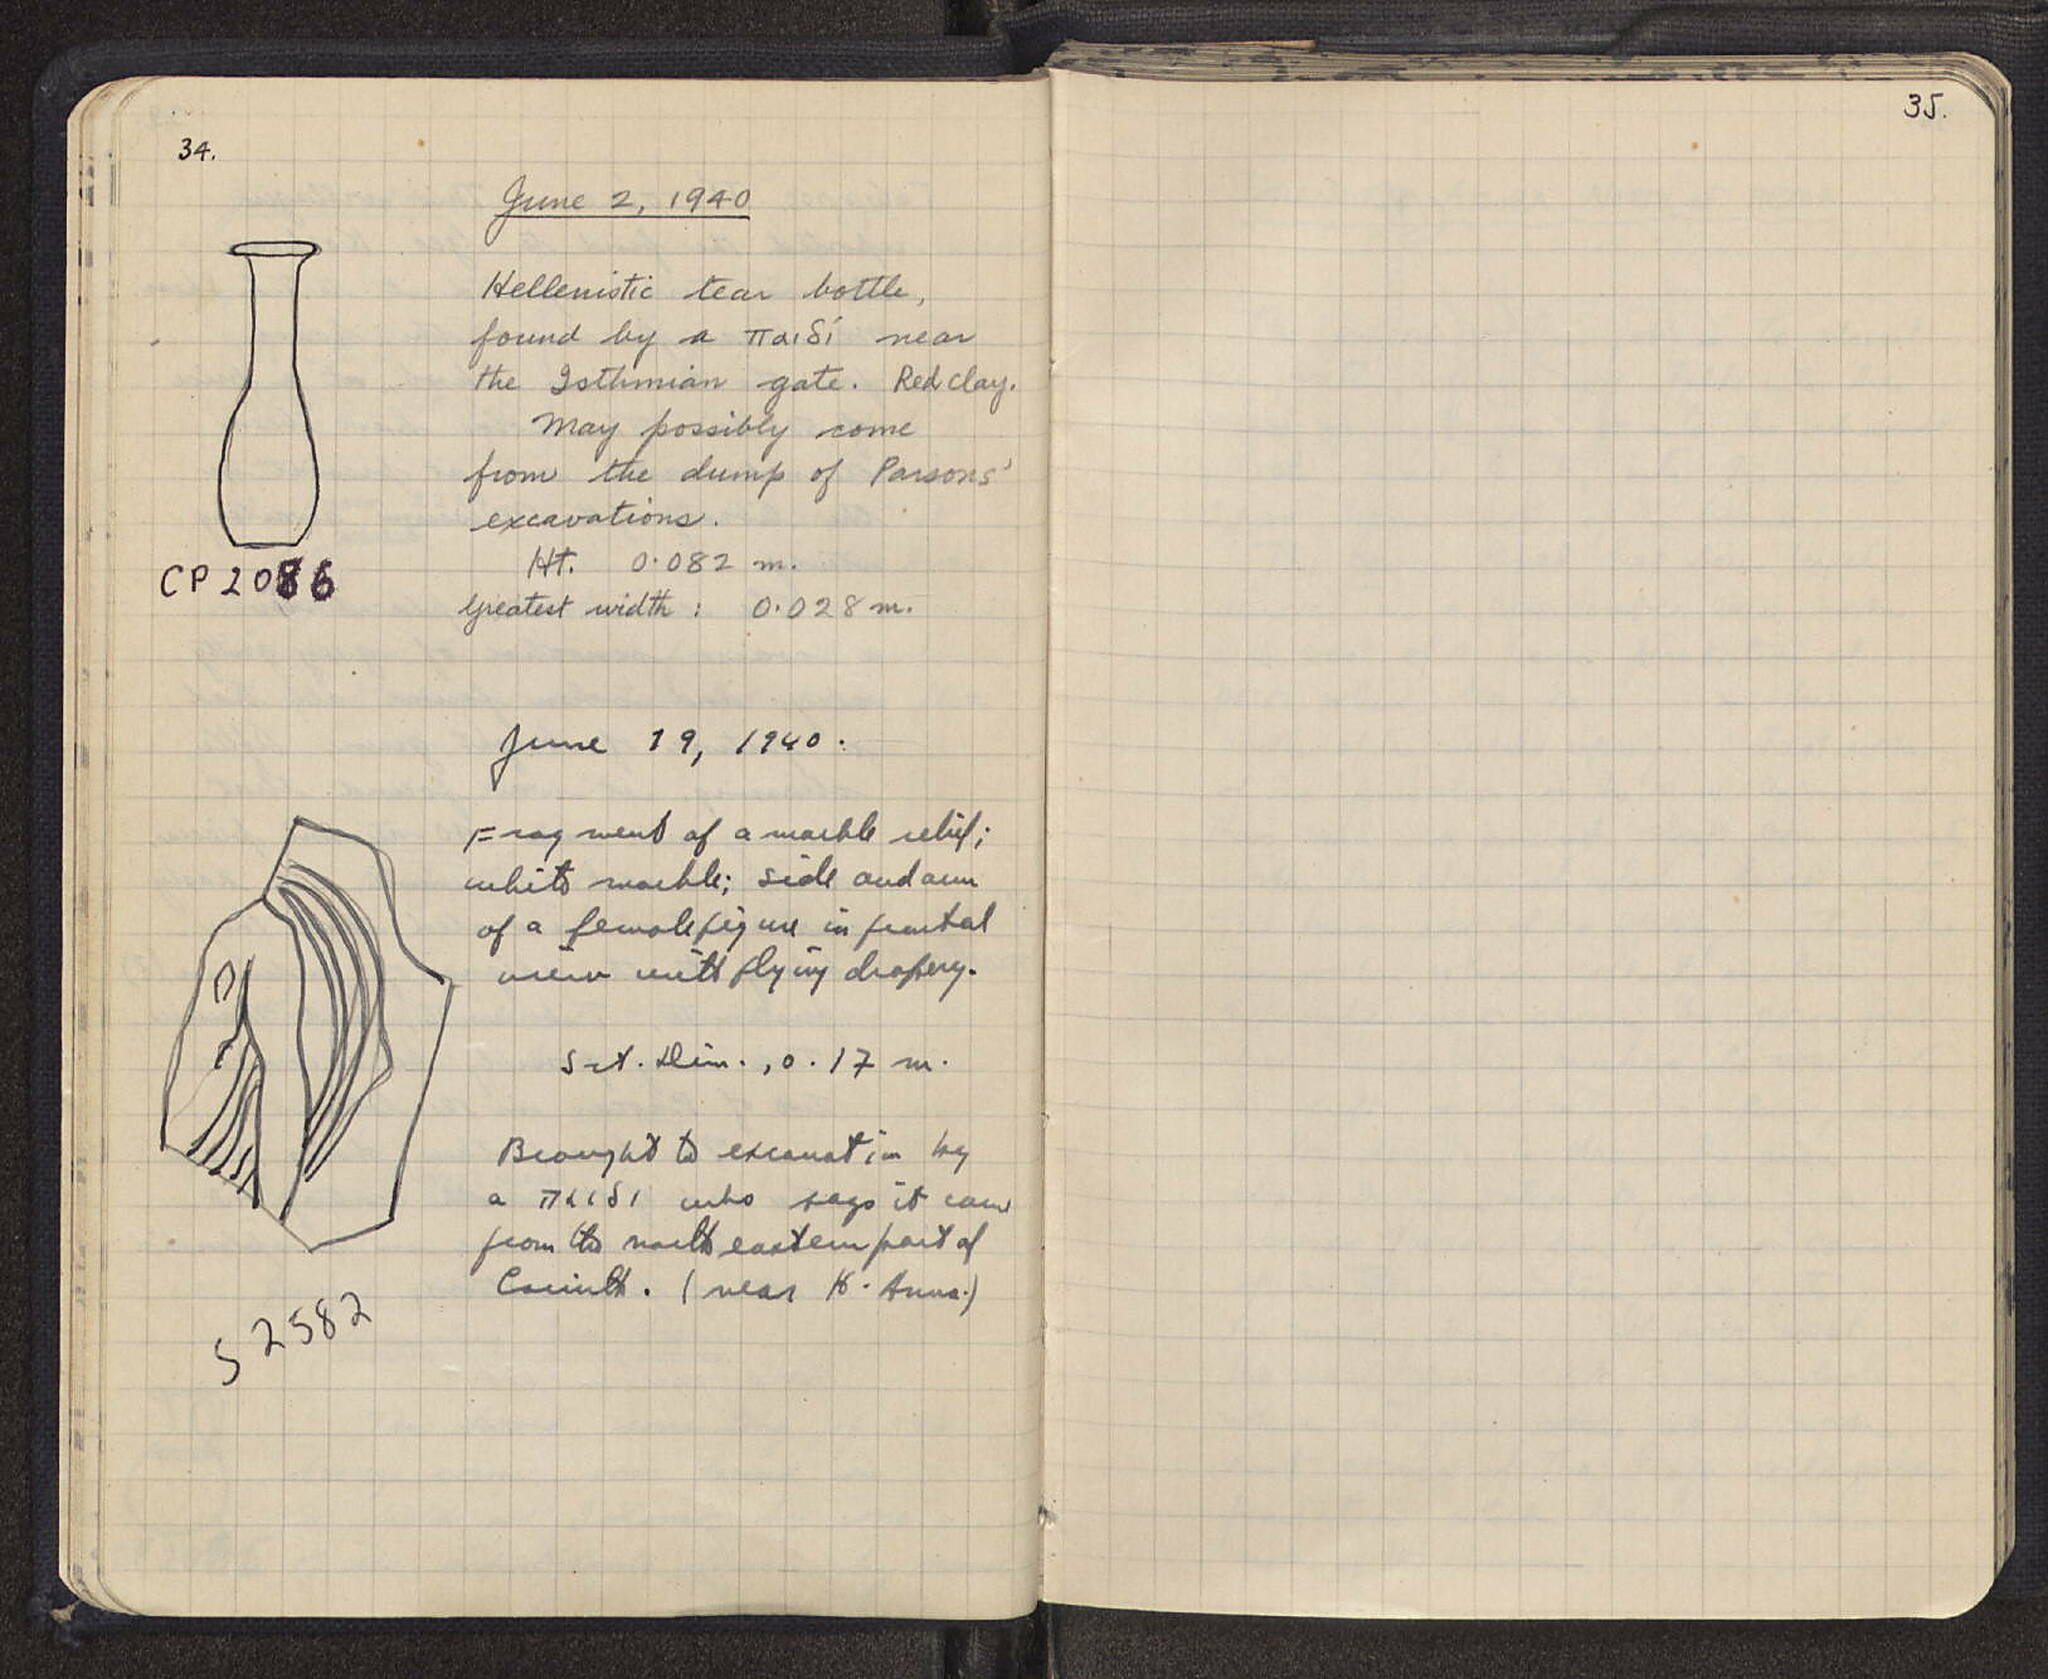 34.
June 2, 1940
Hellenistic tear bottle,
found by a παιδί near
the Isthmian gate. Red clay.
May possibly come
from the dump of Parsons'
excavations.
Ht. 0.082 m.
Greatest width : 0.028 m.
CP 2086
June 19, 1940.
Fragment of a marble relief;
white marble; side and arm
of a female figure in frontal
view with flying drapery.
Dim., 0.17 m.
Brought to excavation by
a παιδι who says it came
from the north eastern part of
Corinth. (near H. Anna.)
S 2582
35.